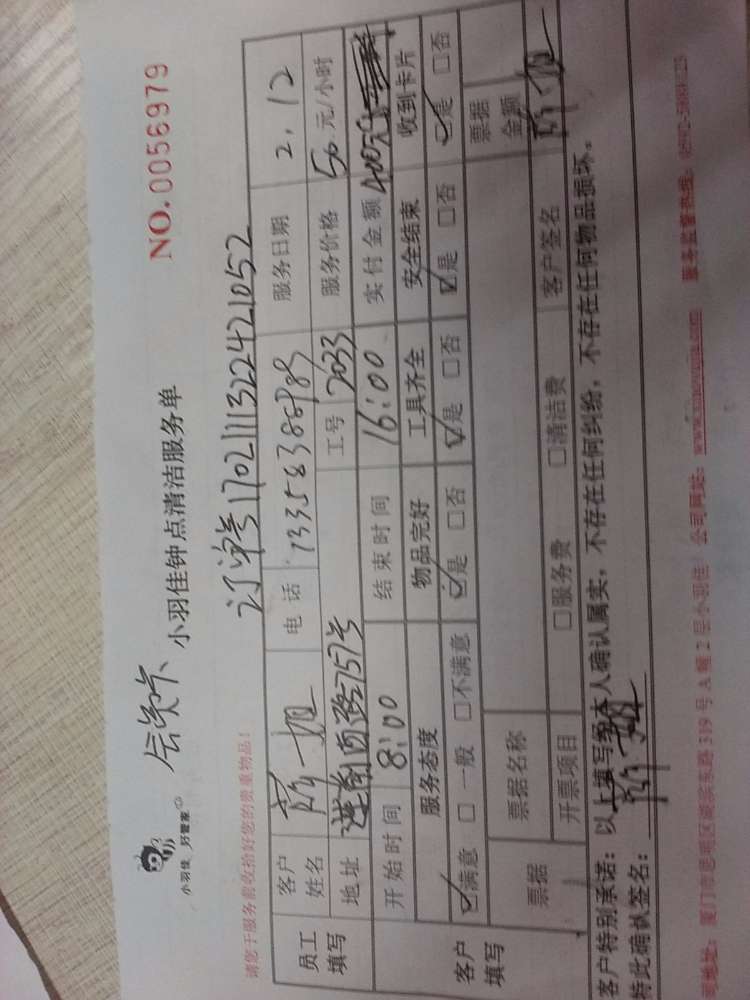 NO.0056979
小羽佳 好管家
小羽佳钟点清洁服务单
请您于服务前收拾好您的贵重物品!
订单号1702111322421052
员工填写
客户姓名
电话 13358388989
服务日期 2.12
地址 757号
工号 2033
服务价格 50 元/小时
开始时间 8:00
结束时间 16:00
实付金额 400元
客户填写
服务态度 物品完好 工具齐全 安全结束 收到卡片
☑满意 □一般 □不满意 ☑是 □否 ☑是 □否 ☑是 □否 ☑是 □否
票据
票据名称
票据金额
开票项目 □服务费 □清洁费
客户签名
客户特别承诺:以上填写经本人确认属实,不存在任何纠纷,不存在任何物品损坏。
特此确认签名:
司地址:厦门市思明区湖滨东路319号A幢2层小羽佳 公司网址: 服务监督热线: